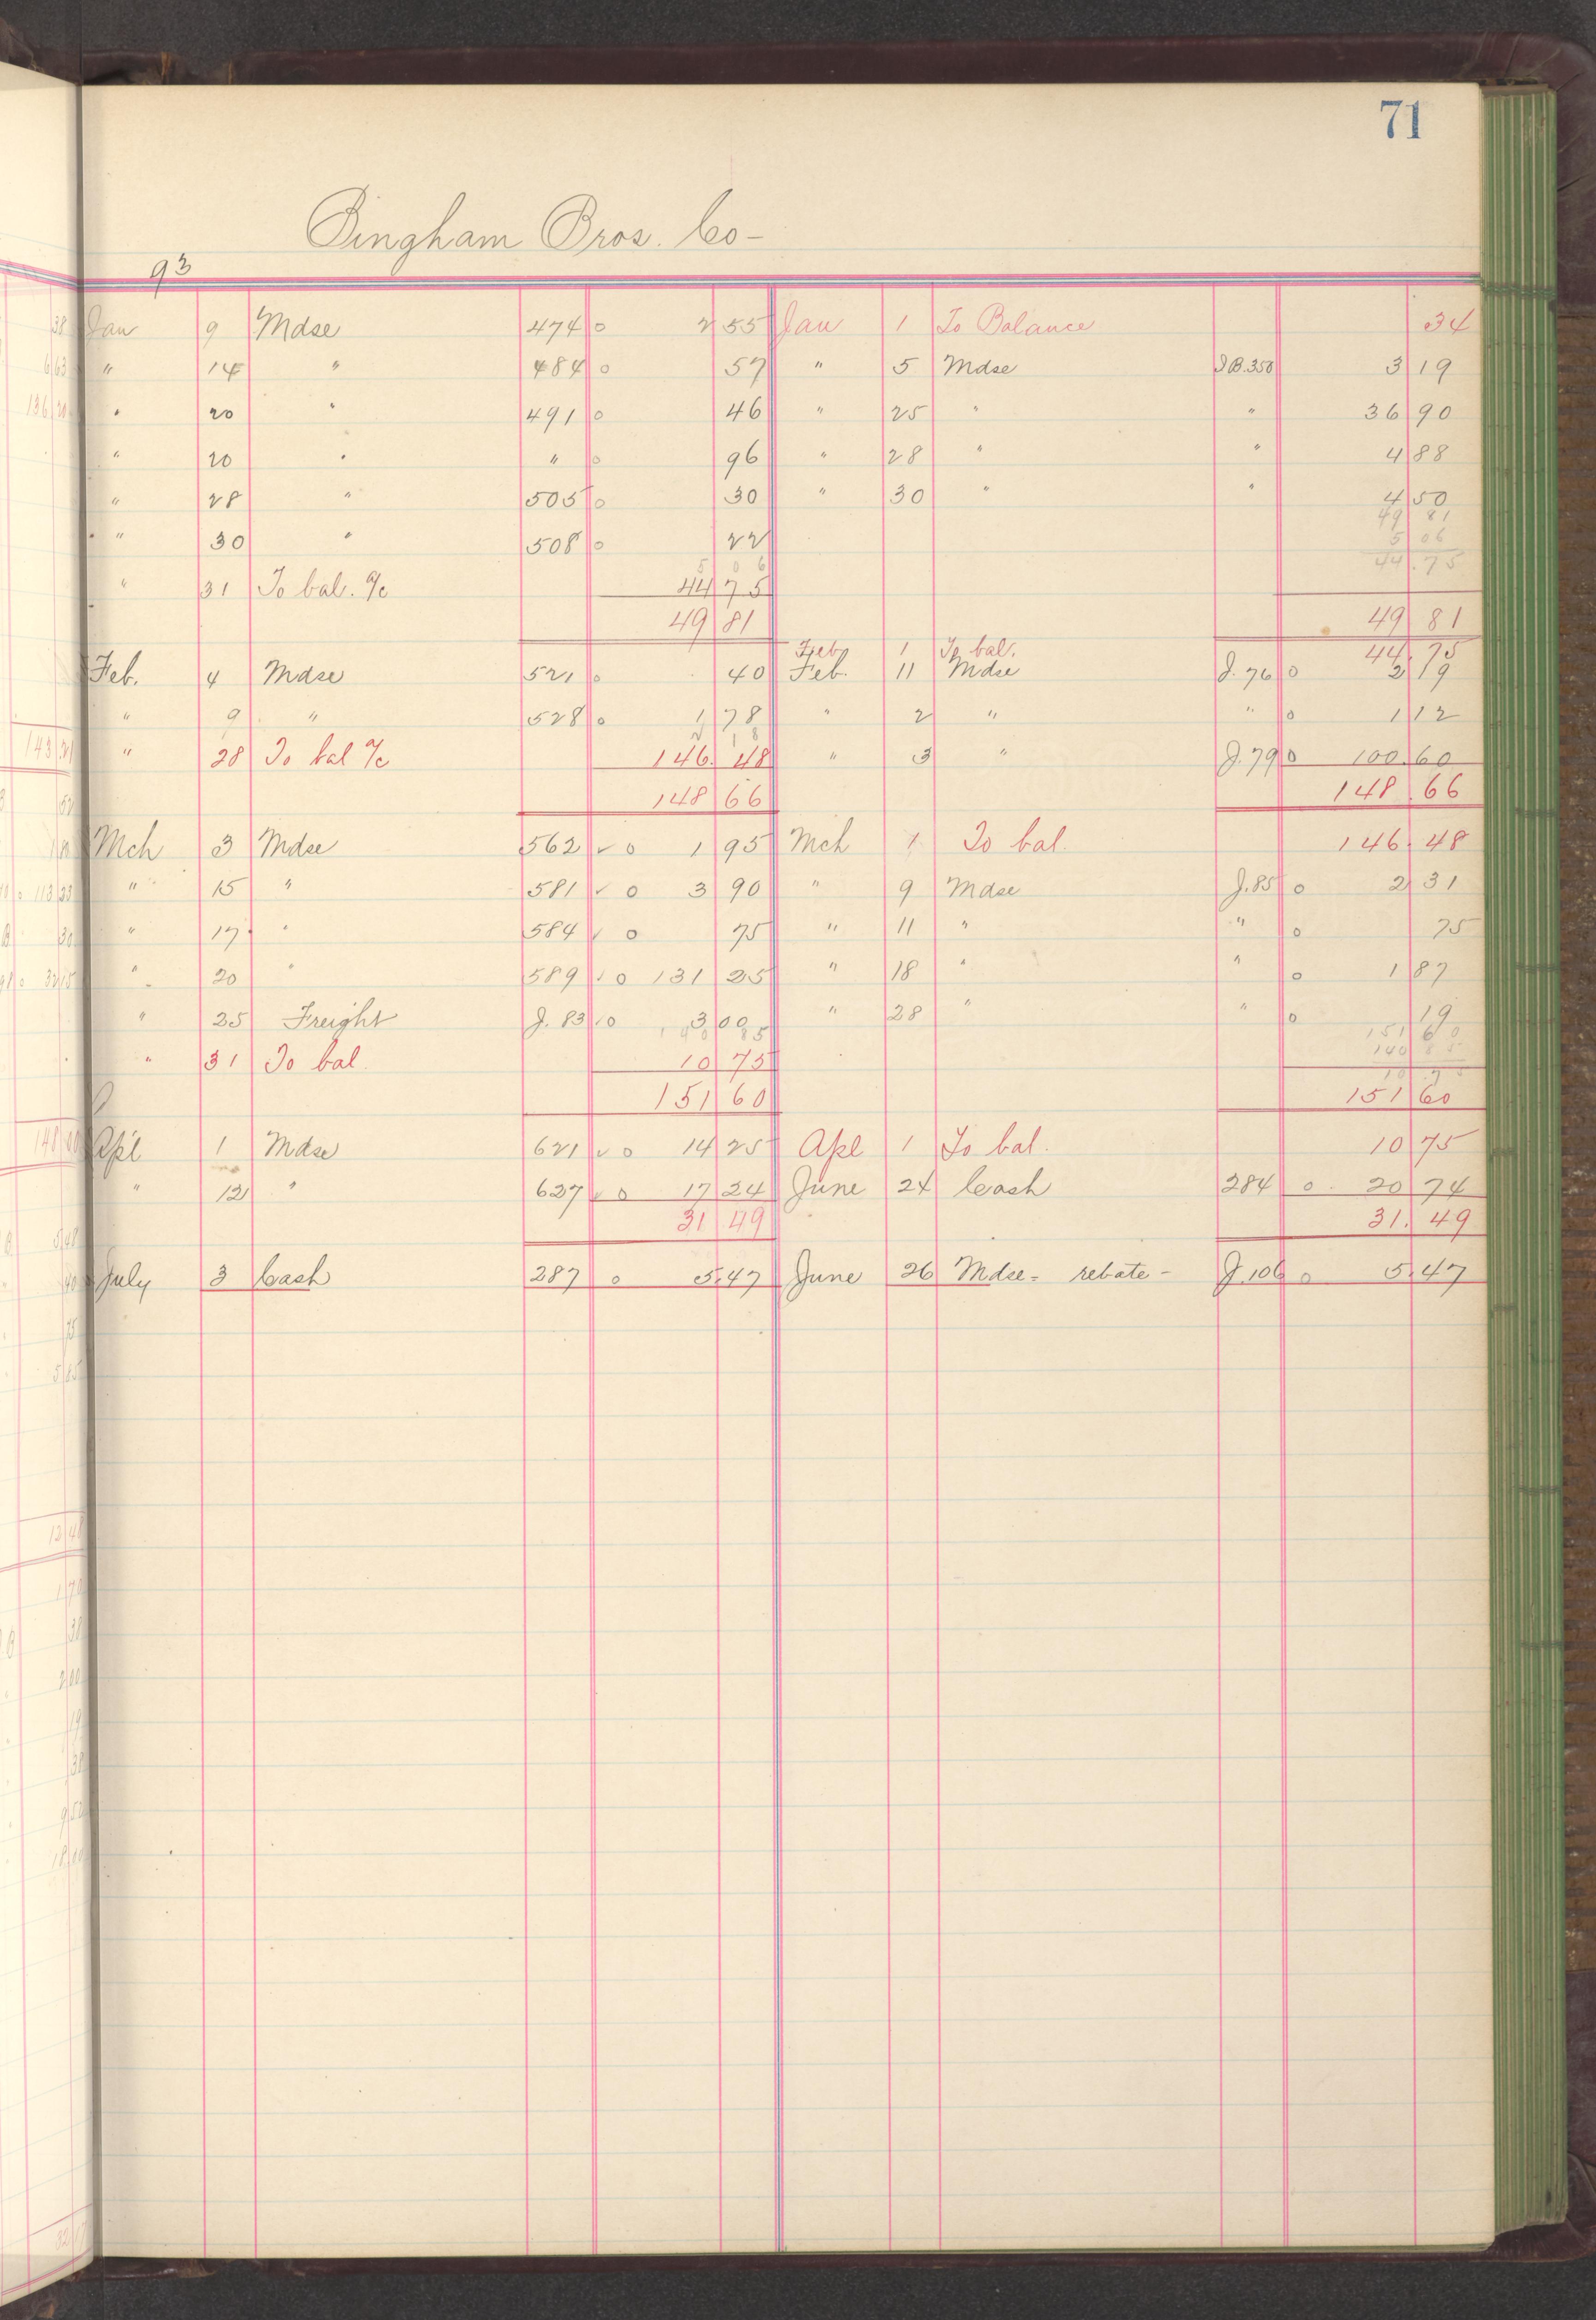 71
Bingham Bros. Co-
93
Jan 9 Mdse 474 o 2 55 Jan 1 To Balance 34
" 14 " 484 o 57 " 5 Mdse J B. 358 3 19
" 20 " 491 o 46 " 25 " " 36 90
" 20 " " o 96 " 28 " " 4 88
" 28 " 505 o 30 " 30 " " 4 50
49 81
" 30 " 508 o 22 5 06
5 06 44.75
" 31 To bal. a/c 44 75
49 81 49 81
Feb 1 To bal. 44.75
Feb. 4 Mdse 521 o 40 Feb. 11 Mdse J. 76 o 2 19
" 9 " 528 o 1 78 " 2 " " o 1 12
2 18
" 28 To bal a/c 146. 48 " 3 " J. 79 o 100.60
148 66 148.66
Mch 3 Mdse 562 ✓ o 1 95 Mch 1 To bal. 146.48
" 15 " 581 ✓ o 3 90 " 9 Mdse J. 85 o 2 31
" 17 " 584 ✓ o 75 " 11 " " o 75
" 20 " 589 ✓ o 131 25 " 18 " " o 1 87
" 25 Freight J. 83 ✓ o 3 00 " 28 " " o 19
140 85 151 60
" 31 To bal. 10 75 140 85
10.75
151 60 151 60
Apl 1 Mdse 621 ✓ o 14 25 Apl 1 To bal. 10 75
" 12 " 627 ✓ o 17 24 June 24 Cash 284 o 20 74
31 49 31. 49
July 3 Cash 287 o 5.47 June 26 Mdse - rebate - J. 106 o 5.47